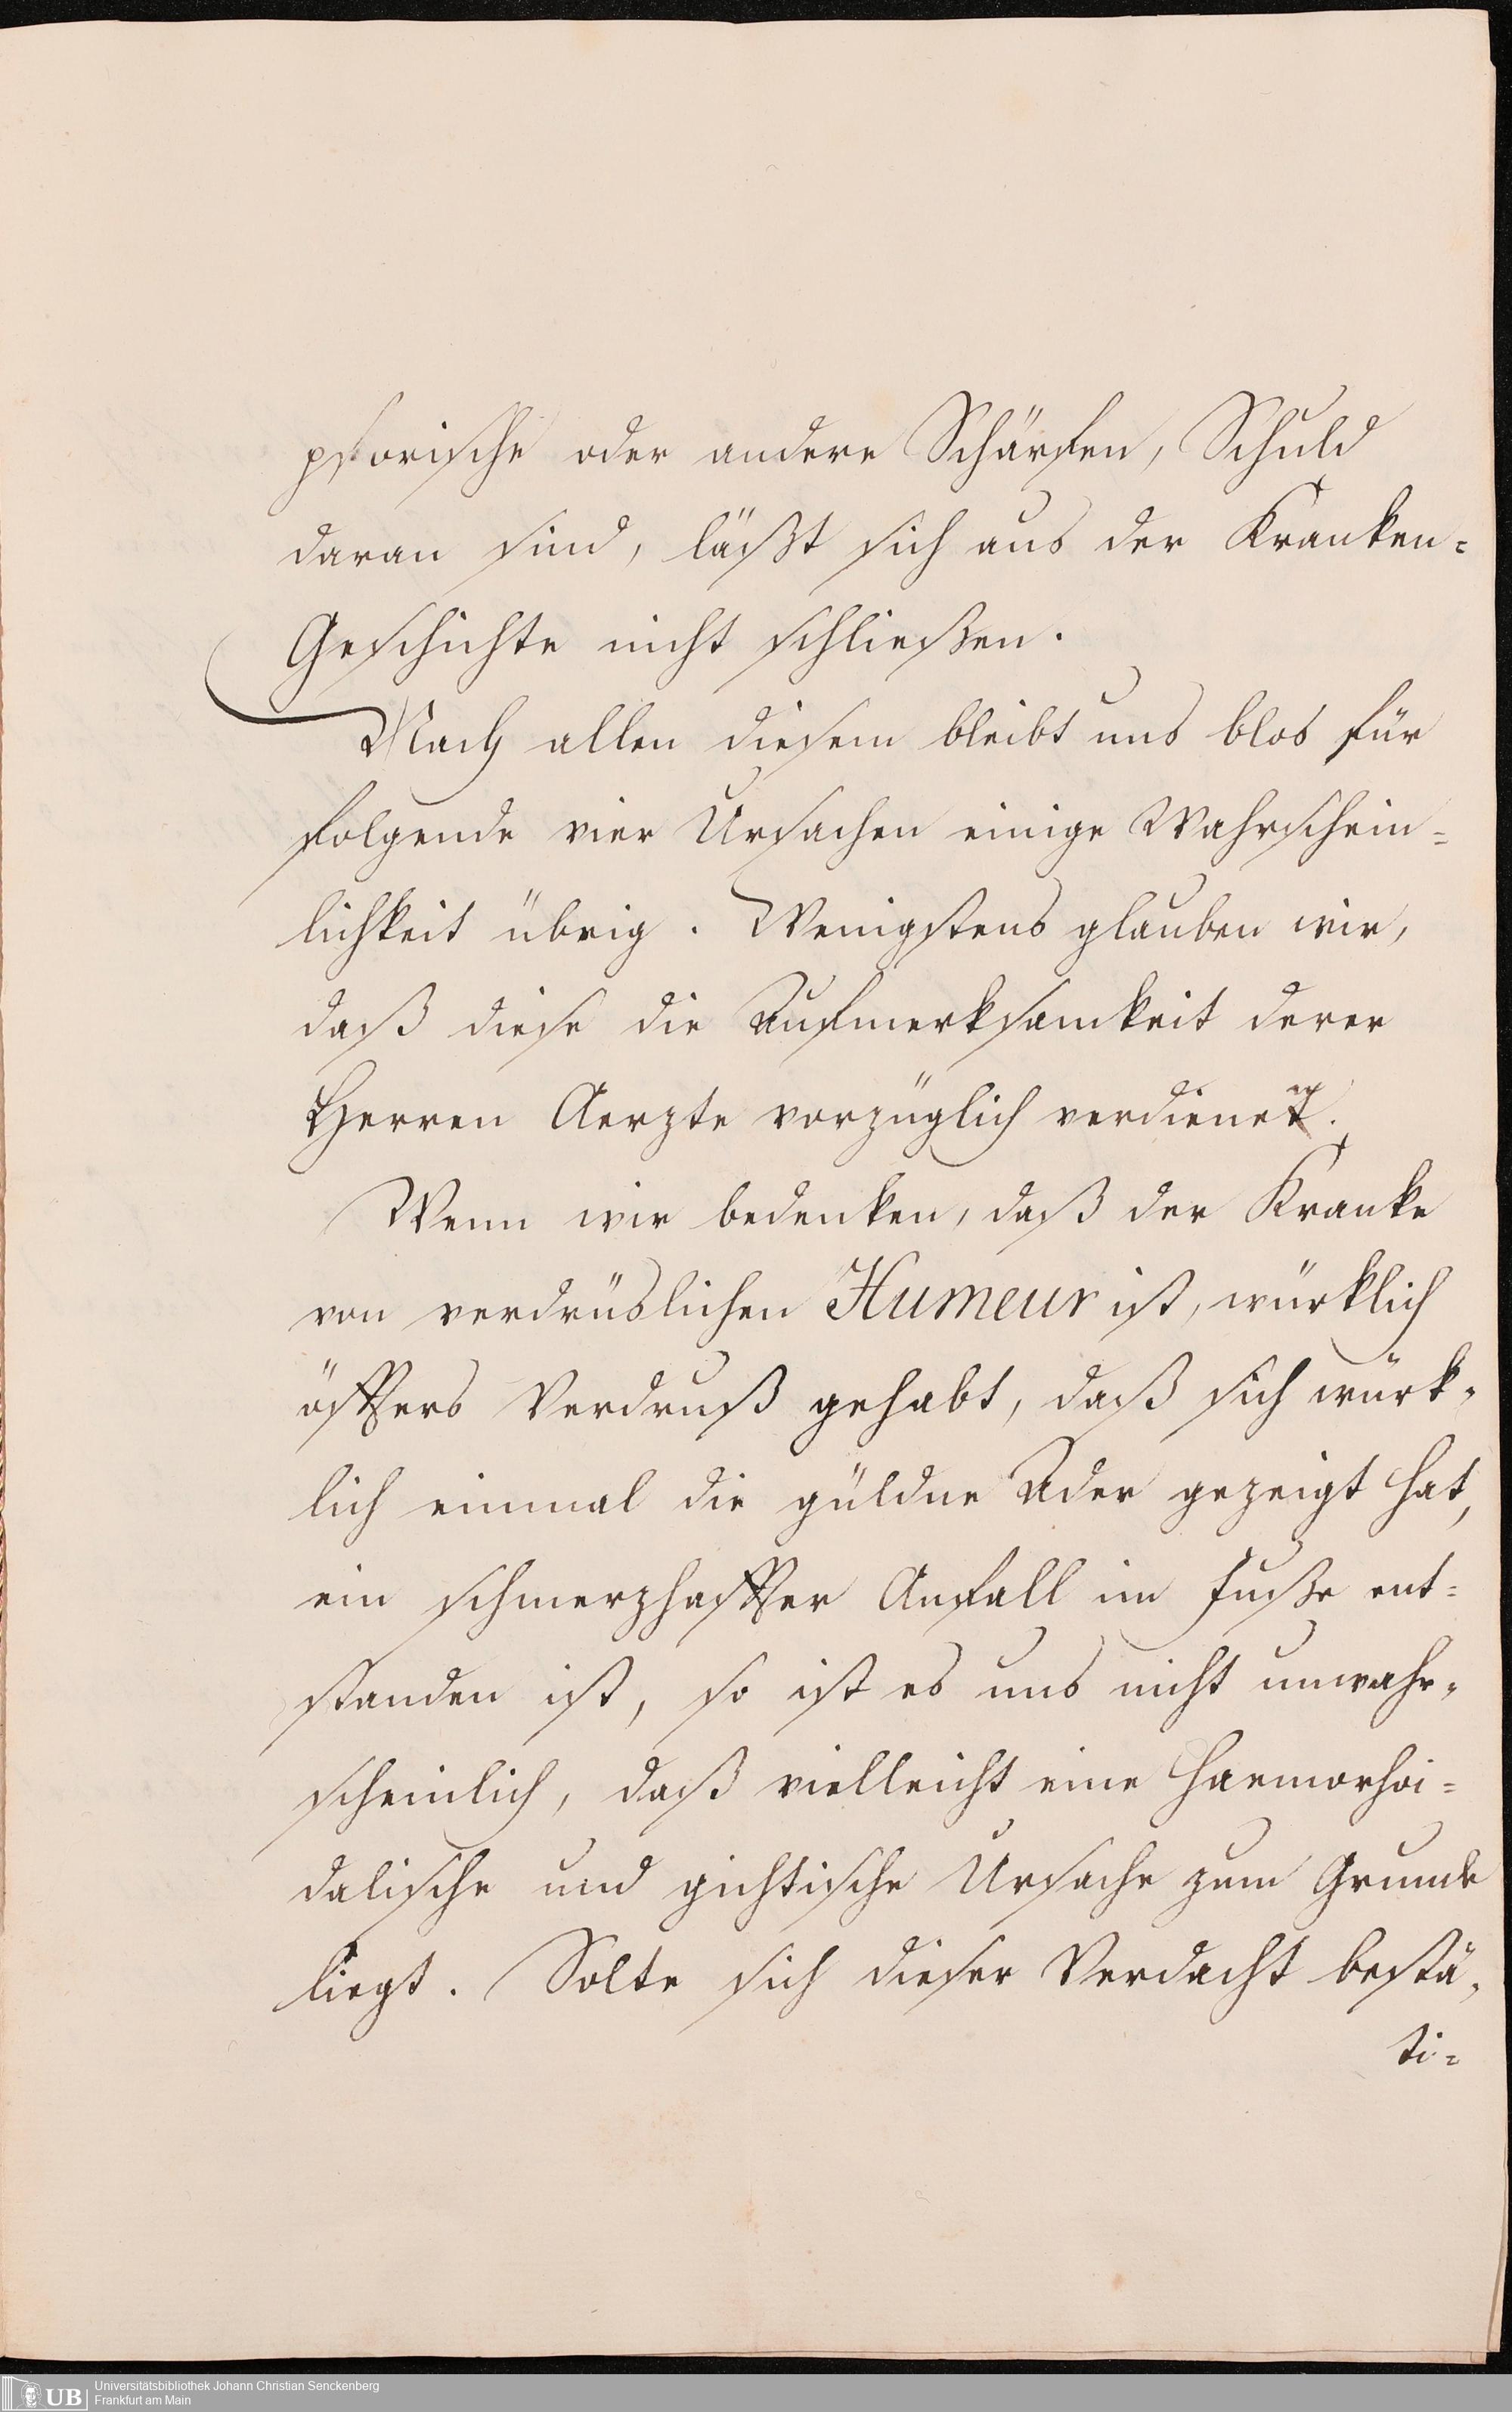 psorische oder andere Schärfen, Schuld
daran sind, läßt sich aus der Kranken=
Geschichte nicht schließen.
Nach allen diesem bleibt uns blos für
folgende vier Ursachen einige Wahrschein=
lichkeit übrig. Wenigstens glauben wir,
daß diese die Aufmerksamkeit derer
Herren Aerzte vorzüglich verdienen.
Wenn wir bedenken, daß der Kranke
von verdrüslichen Humeur ist, würklich
öffters Verdruß gehabt, daß sich würk=
lich einmal die güldne Ader gezeigt hat,
ein schmerzhaffter Anfall im Fuße ent=
standen ist, so ist es uns nicht unwahr=
scheinlich, daß vielleicht eine haemorhoi=
dalische und gichtische Ursache zum Grunde
liegt. Solte sich dieser Verdacht bestä=
ti=
UB
Universitätsbibliothek Johann Christian Senckenberg
Frankfurt am Main